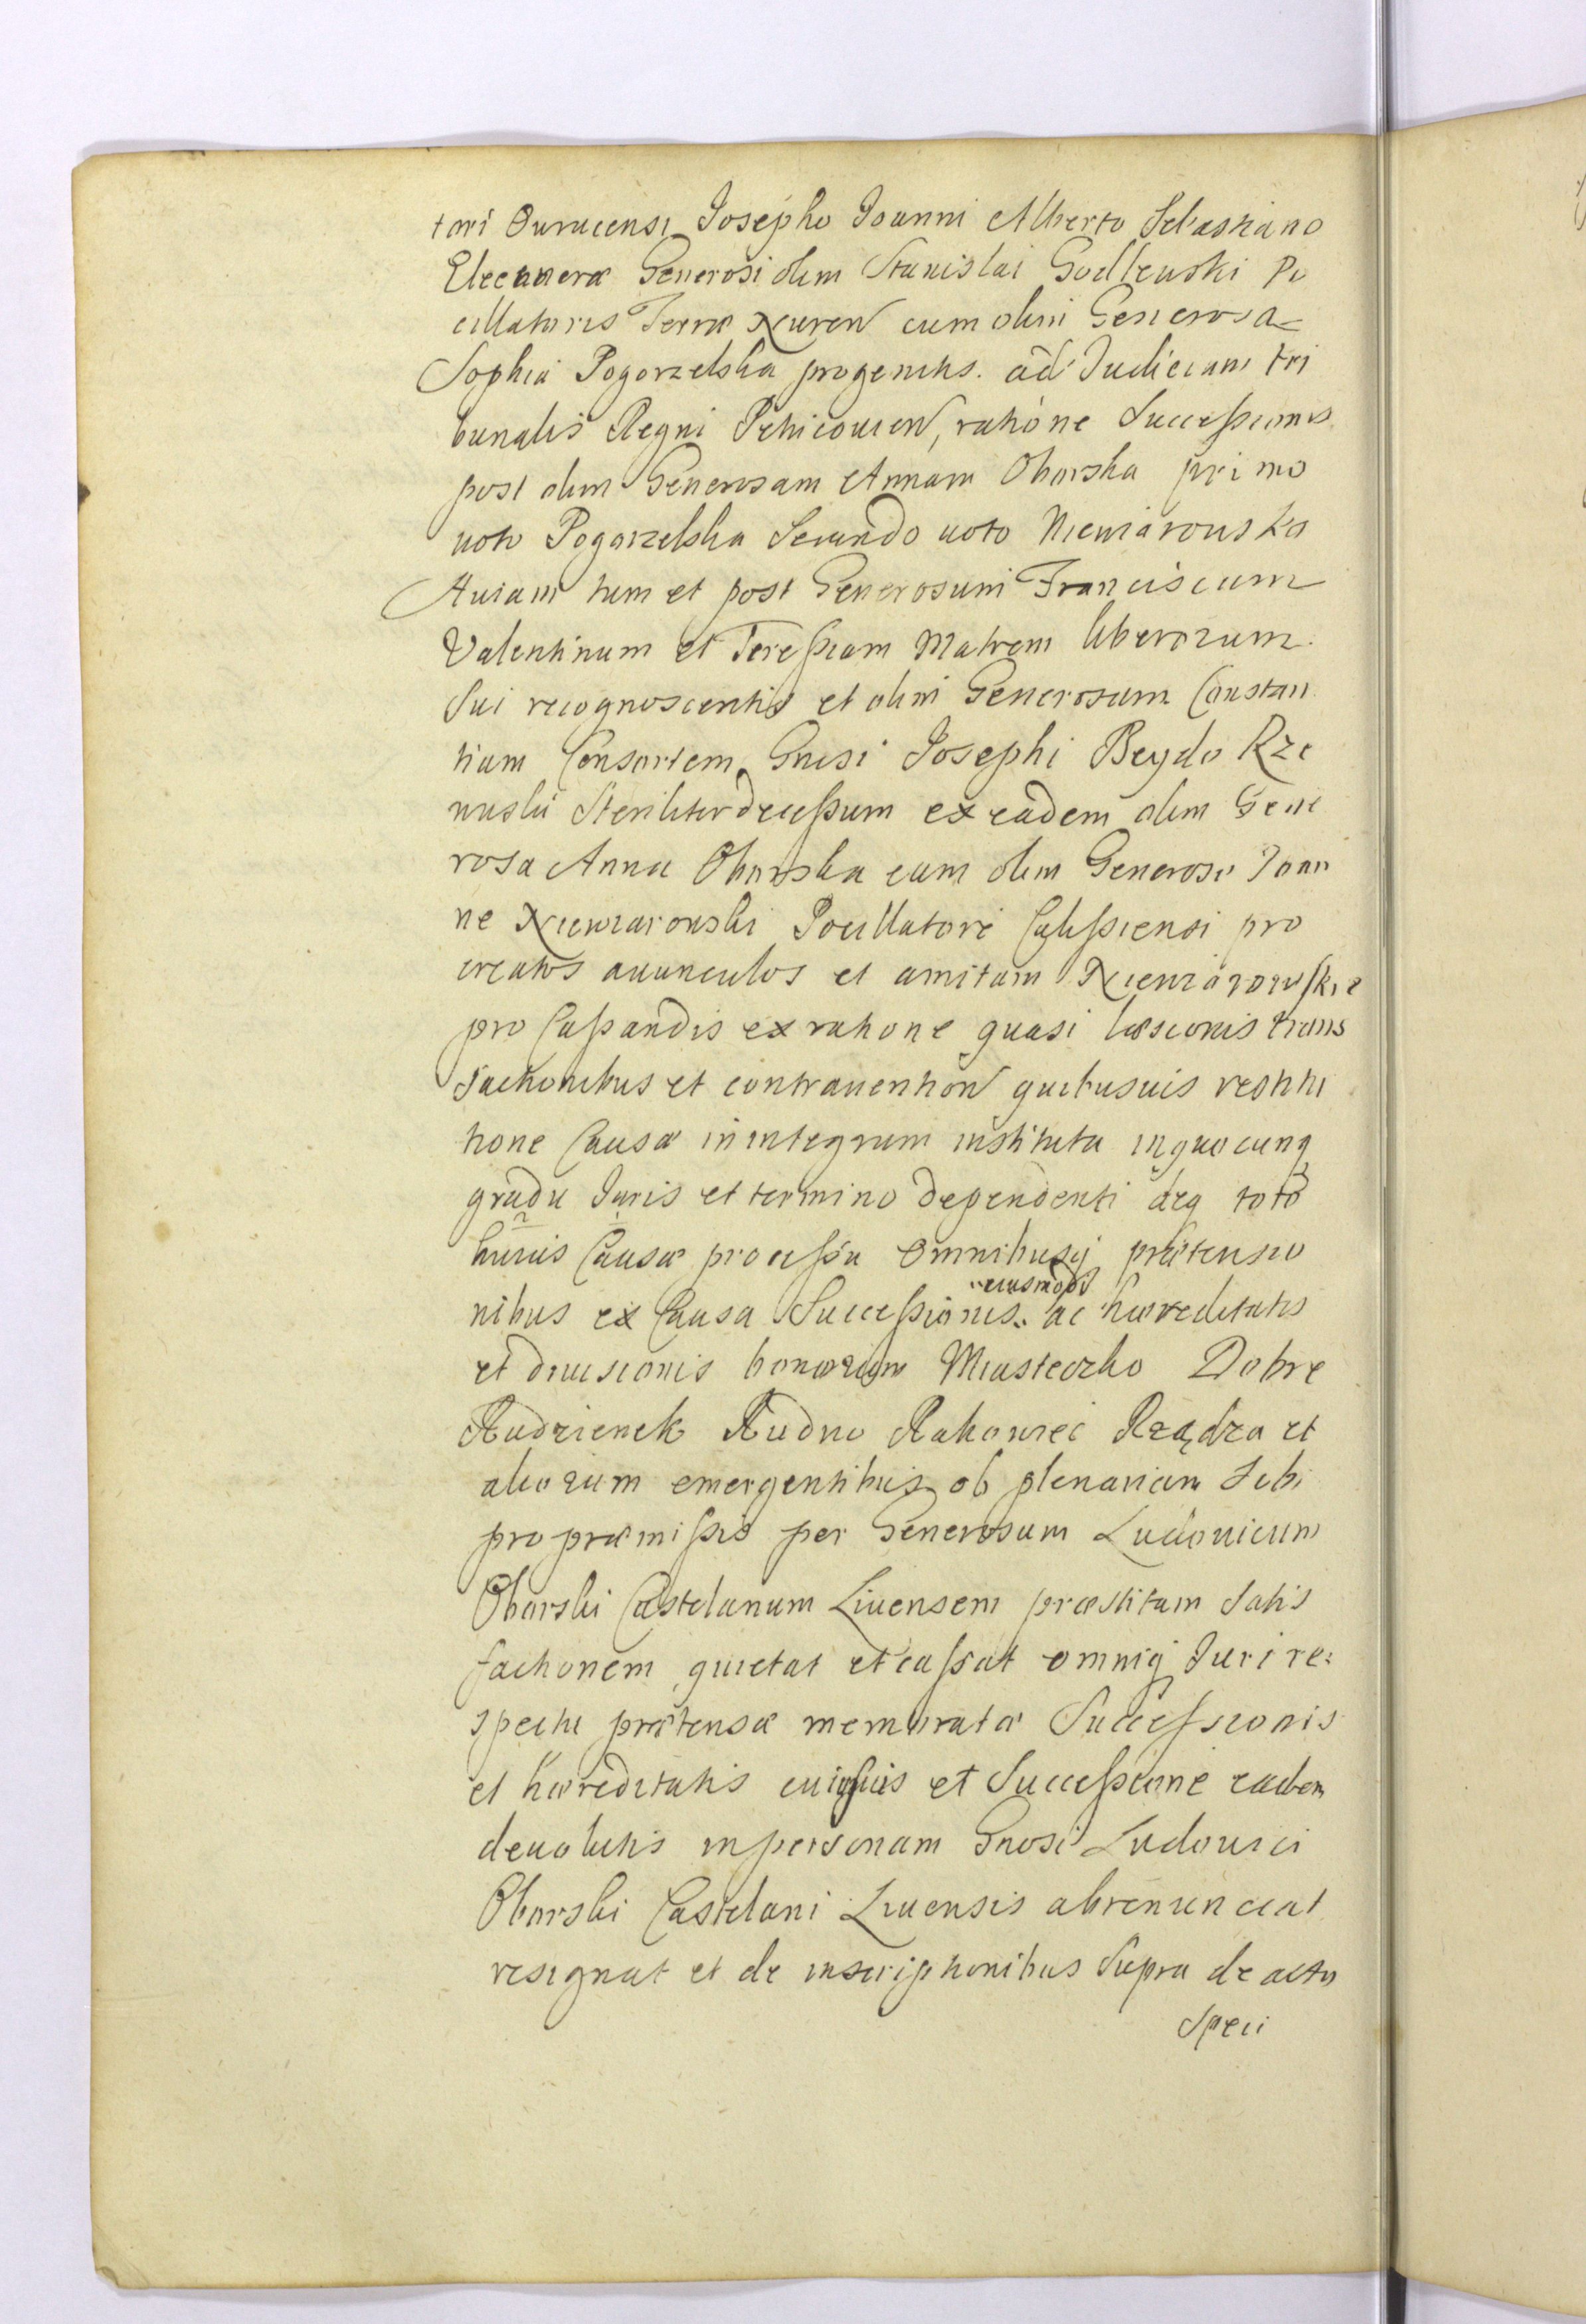 tori Owrucensi Josepho Joanni Alberto Sebastiano
Eleonoræ Generosi olim Stanislai Godlewski Po
cillatoris Terræ Nuren cum olim Generosa
Sophia Pogorzelska progenitis. ad Judicium tri
bunalis Regni Petricovien, ratione Successionis
post olim Generosam Annam Oborska primo
voto Pogorzelska Secundo voto Niemiarowska
Aviam tum et post Generosum Franciscum
Valentinum et Teressiam Matrem liberorum
Sui recognoscentis et olim Generosam Constan
tiam Consortem Gnesi Josephi Beydo Rze
wuski Steriliter decessum ex eadem olim Gene
rosa Anna Oborska cum olim Generoso Joan
ne Niemiarowski Pocillatore Calissiensi pro
creatos avunculos et amitam Niemiarowskie
pro Cassandis ex ratione quasi læsionis trans
sactionibus et contravention quibusvis restitu
tione Causæ in integrum instituta in quocunq
gradu Juris et termino dependenti deq toto
huius Causæ processu Omnibusq prætensio
eiusmodi
nibus ex Causa Successionis ac hæreditatis
et divisionis bonorum Miasteczko Dobre
Rudzienek Rudno Rakowiec Rządza et
aliorum emergentibus ob plenariam Sibi
pro præmissis per Generosum Ludovicum
Oborski Castelanum Livensem præstitam Satis
factionem quietat et cassat omniq Juri re:
spectu prætensæ memoratæ Successionis
et hæreditatis cuiusvis et Successione eadem
devolutis in personam Gnosi Ludovici
Oborski Castelani Livensis abrenunciat
resignat et de inscriptionibus Supra de actu
Speci